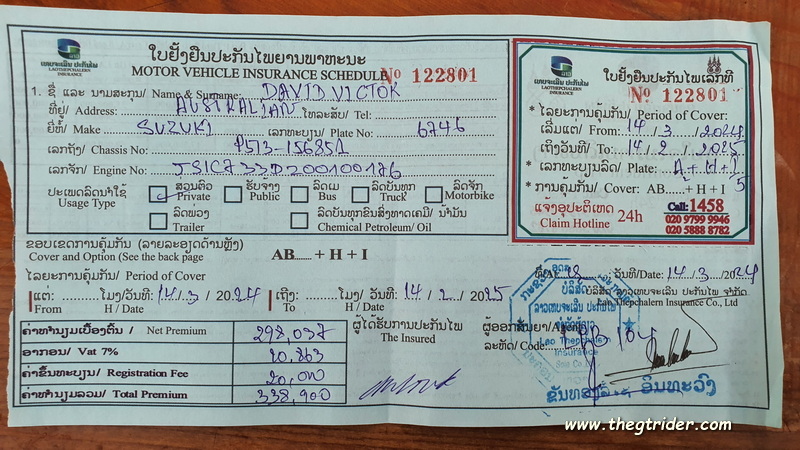 ໃບຢັ້ງຢືນປະກັນໄພຍານພາຫະນະ
MOTOR VEHICLE INSURANCE SCHEDULE
Nº 122801
ເທບຈະເລີນ ປະກັນໄພ
LAOTHEPCHALERN
INSURANCE
1. ຊື່ ແລະ ນາມສະກຸນ/ Name & Surname: DAVID VICTOR
ທີ່ຢູ່/ Address: AUSTRALIAN ໂທລະສັບ/ Tel:
ຍີ່ຫໍ້/ Make SUZUKI ເລກທະບຽນ/ Plate No: 6746
ເລກຖັງ/ Chassis No:
ເລກຈັກ/ Engine No:
ປະເພດລົດນຳໃຊ້
Usage Type
ສ່ວນຕົວ
Private
ຮັບຈ້າງ
Public
ລົດເມ
Bus
ລົດບັນທຸກ
Truck
ລົດຈັກ
Motorbike
ລົດພ່ວງ
Trailer
ລົດບັນທຸກຂົນສົ່ງທາດເຄມີ/ ນ້ຳມັນ
Chemical Petroleum/ Oil
ຂອບເຂດການຄຸ້ມກັນ (ລາຍລະອຽດດ້ານຫຼັງ)
Cover and Option (See the back page
AB....... + H + I
ໄລຍະການຄຸ້ມກັນ / Period of Cover
ແຕ່: ໂມງ/ວັນທີ: 14/3/2024
From H / Date
ເຖິງ: ໂມງ/ ວັນທີ: 14/2/2025
To: H / Date
ຄ່າທຳນຽມເບື້ອງຕົ້ນ/ Net Premium 298,037
ອາກອນ/ Vat 7% 20,863
ຄ່າຂຶ້ນທະບຽນ/ Registration Fee 20,000
ຄ່າທຳນຽມລວມ/ Total Premium 338,900
ຜູ້ໄດ້ຮັບການປະກັນໄພ
The Insured
ເທບຈະເລີນ ປະກັນໄພ
LAOTHEPCHALERN
INSURANCE
ໃບຢັ້ງຢືນປະກັນໄພເລກທີ
Nº 122801
* ໄລຍະການຄຸ້ມກັນ/ Period of Cover:
ເລີ່ມແຕ່/ From: 14/3/2024
ເຖິງວັນທີ/ To: 14/2/2025
* ເລກທະບຽນລົດ/ Plate: A + H + I
* ການຄຸ້ມກັນ/ Cover: AB......+ H + I 5
ແຈ້ງອຸປະຕິເຫດ
Claim Hotline
24h
Call: 1458
020 9799 9946
020 5888 8782
ວັນທີ/Date: 14/3/2024
ບໍລິສັດ ລາວເທບຈະເລີນ ປະກັນໄພ ຈຳກັດ
Lao Thepchalern Insurance Co., Ltd
ລະຫັດ/ Code
Lao Thepchalern
Insurance
www.thegtrider.com